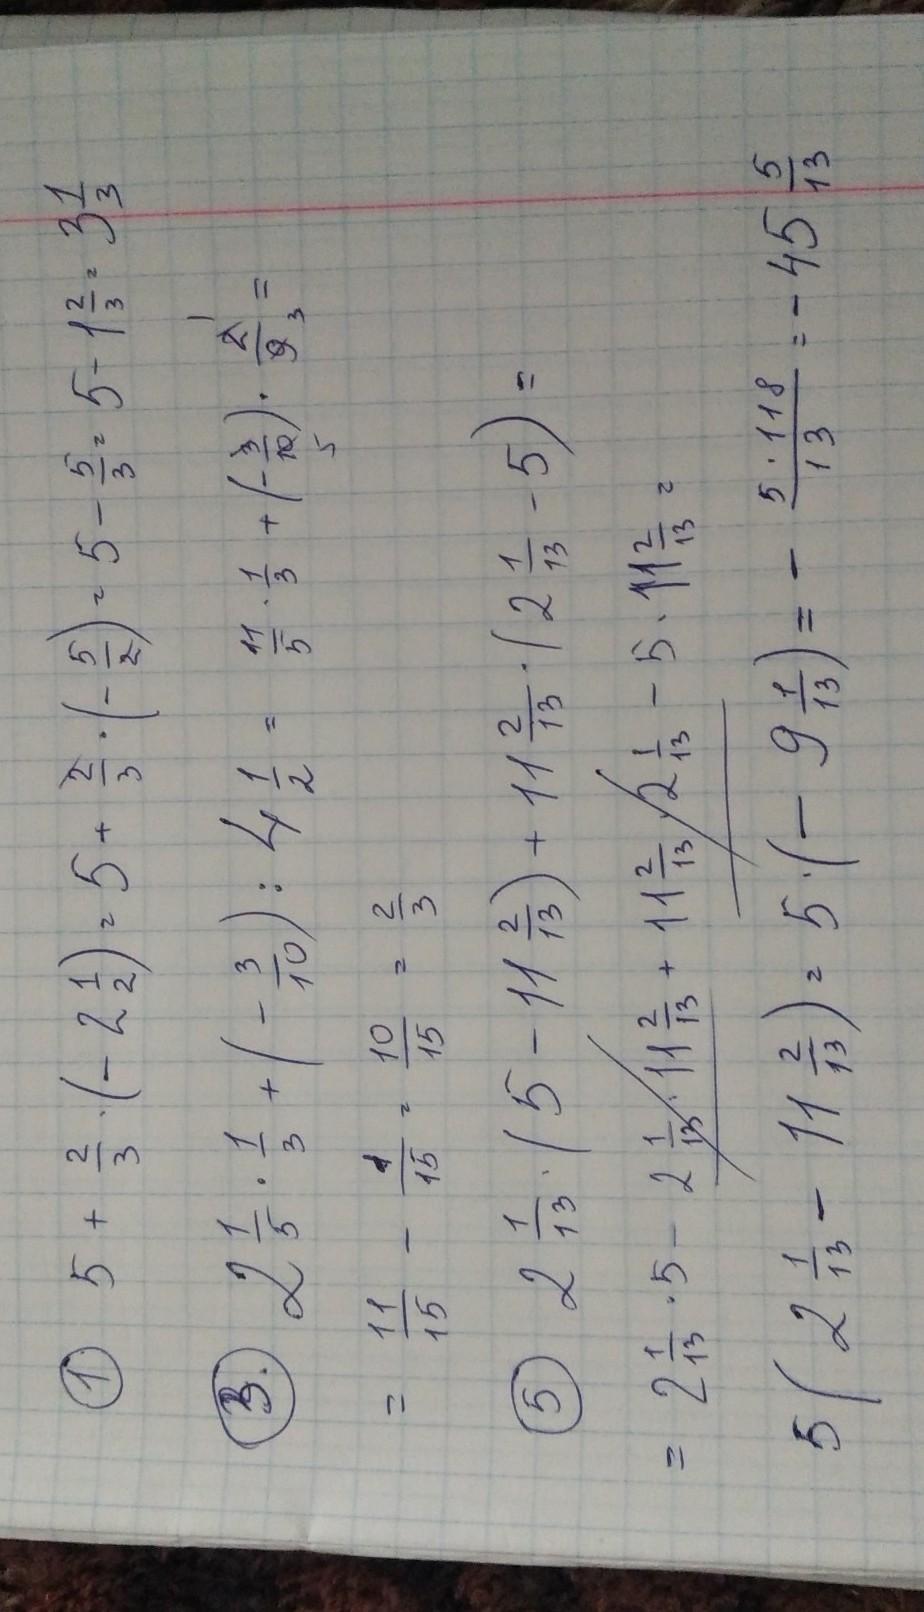 ① 5 + 2/3 · (- 2 1/2) = 5 + 2/3 · (- 5/2) = 5 - 5/3 = 5 - 1 2/3 = 3 1/3
③. 2 1/5 · 1/3 + (- 3/10) : 4 1/2 = 11/5 · 1/3 + (- 3/10 5) · 2/9 1 3 =
= 11/15 - 1/15 = 10/15 = 2/3
⑤ 2 1/13 · (5 - 11 2/13) + 11 2/13 · (2 1/13 - 5) =
= 2 1/13 · 5 - 2 1/13 · 11 2/13 + 11 2/13 · 2 1/13 - 5 · 11 2/13 =
5 (2 1/13 - 11 2/13) = 5 · (- 9 1/13) = - 5 · 118/13 = - 45 5/13